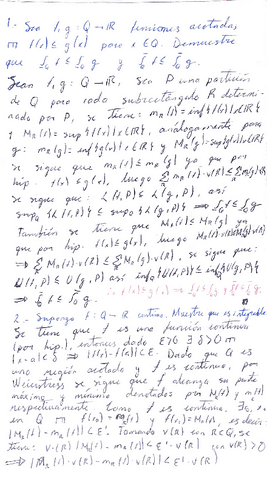 1.- Sea f, g: Q → ℝ funciones acotadas,
f(x) ≤ g(x) para x ∈ Q. Demuestre
que ∫_Q f ≤ ∫_Q g y ∫_Q f ≤ ∫_Q g.
Sean f, g: Q → ℝ, Sea P una partición
de Q para cada subrectángulo R determi-
nado por P, se tiene: m_R(f) = inf{f(x)|x∈R}
y M_R(f) = sup{f(x)|x∈R}, análogamente para
g: m_R(g) = inf{g(x)|x∈R} y M_R(g) = sup{g(x)|x∈R}
se sigue que m_R(f) ≤ m_R(g) ya que por
hip. f(x) ≤ g(x), luego
se sigue que: L(f,P) ≤ L(g,P), así
sup{L(f,P)} ≤ sup{L(g,P)} ⇒ ∫_Q f ≤ ∫_Q g
También se tiene que M_R(f) ≤ M_R(g) ya
que por hip. f(x) ≤ g(x), luego
⇒ Σ M_R(f)·v(R) ≤ Σ M_R(g)·v(R), se sigue que:
U(f,P) ≤ U(g,P) así inf{U(f,P)} ≤ inf{U(g,P)}
⇒ ∫_Q f ≤ ∫_Q g. ∴ f(x) ≤ g(x) ⇒ ∫_Q f ≤ ∫_Q g
2.- Suponga f: Q → ℝ continua. Muestre que es integrable.
Se tiene que f es una función continua
(por hip.), entonces dado ε>0 ∃ δ>0
⇒ |f(x)-f(a)| < ε. Dado que Q es
una región acotada y f es continua, por
Weierstrass se sigue que f alcanza su punto
máximo y mínimo denotados por M_R(f) y m_R(f)
respectivamente. Como f es continua,
en Q f(x₀) = m_R(f) y f(x₁) = M_R(f), es decir:
|M_R(f) - m_R(f)| < ε'. Tomando v(R) con R⊂Q, se
tiene: v(R)|M_R(f) - m_R(f)| < ε'·v(R) con v(R) > 0
⇒ |M_R(f)·v(R) - m_R(f)·v(R)| < ε'·v(R)